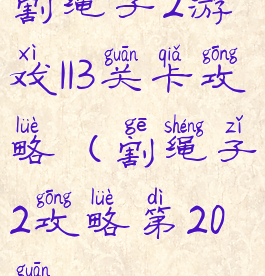 割绳子2游
xì guān qiǎ gōng
戏113关卡攻
lüè gē shéng zǐ
略（割绳子
gōng lüè dì
2攻略第20
guān